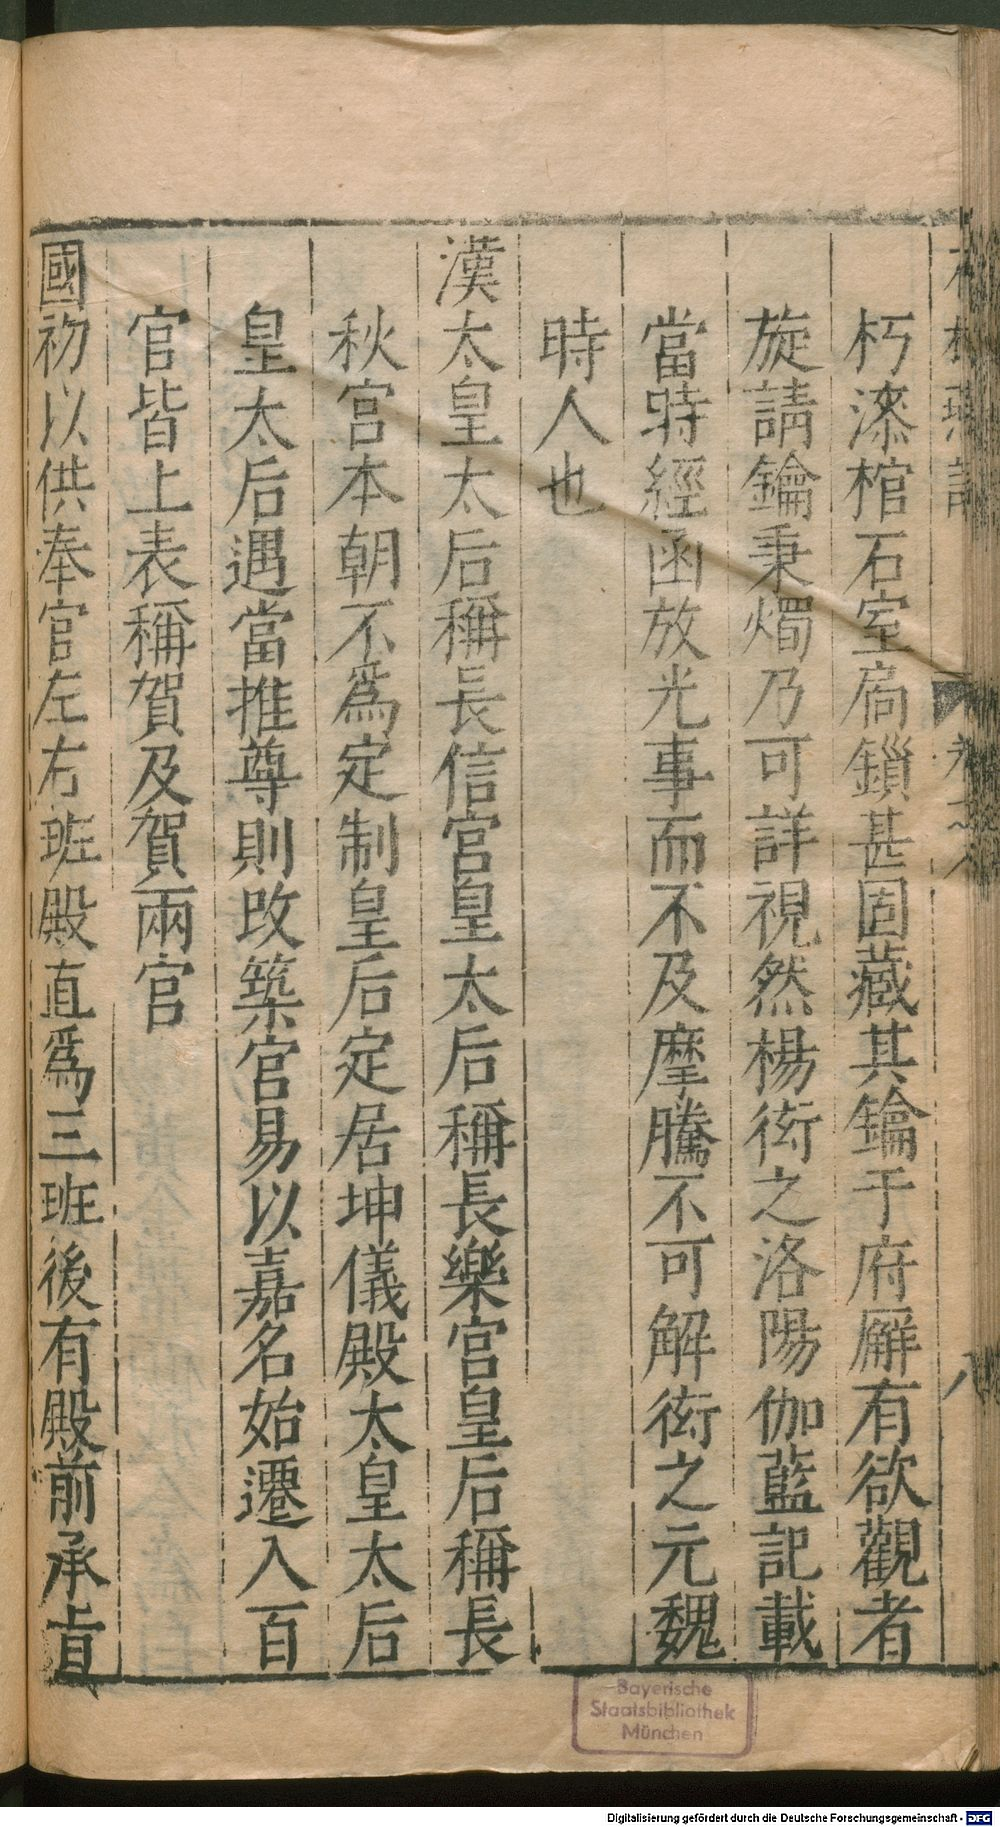 朽漆棺石室扃鎖甚固藏其鑰于府廨有欲觀者
旋請鑰秉燭乃可詳視然楊衒之洛陽伽藍記載
當時經函放光事而不及摩騰不可解衒之元魏
時人也
漢太皇太后稱長信宮皇太后稱長樂宮皇后稱長
秋宮本朝不爲定制皇后定居坤儀殿太皇太后
皇太后遇當推尊則改築宮易以嘉名始遷入百
官皆上表稱賀及賀兩宮
國初以供奉官左右班殿直爲三班後有殿前承旨
八
Bayerische
Staatsbibliothek
München
Digitalisierung gefördert durch die Deutsche Forschungsgemeinschaft - DFG